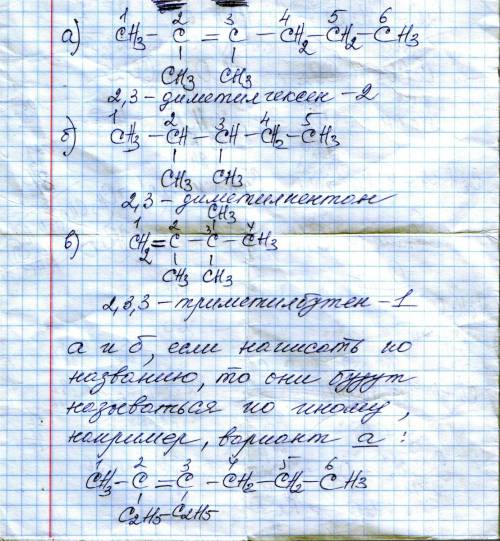 1 2 3 4 5 6
а) CH3 – C = C – CH2 – CH2 – CH3
CH3 CH3
2,3 – диметилгексен – 2
1 2 3 4 5
б) CH3 – CH – CH – CH2 – CH3
CH3 CH3
2,3 – диметилпентон
CH3
1 2 3 4
в) CH2 = C – C – CH3
CH3 CH3
2,3,3 – триметилбутен – 1
а и б, если написать по
названию, то они будут
называться по иному,
например, вариант а:
1 2 3 4 5 6
CH3 – C = C – CH2 – CH2 – CH3
C2H5 C2H5